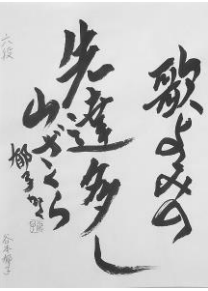 歌よみの
先達多し
山ざくら
郁子かく
六段
谷本郁子